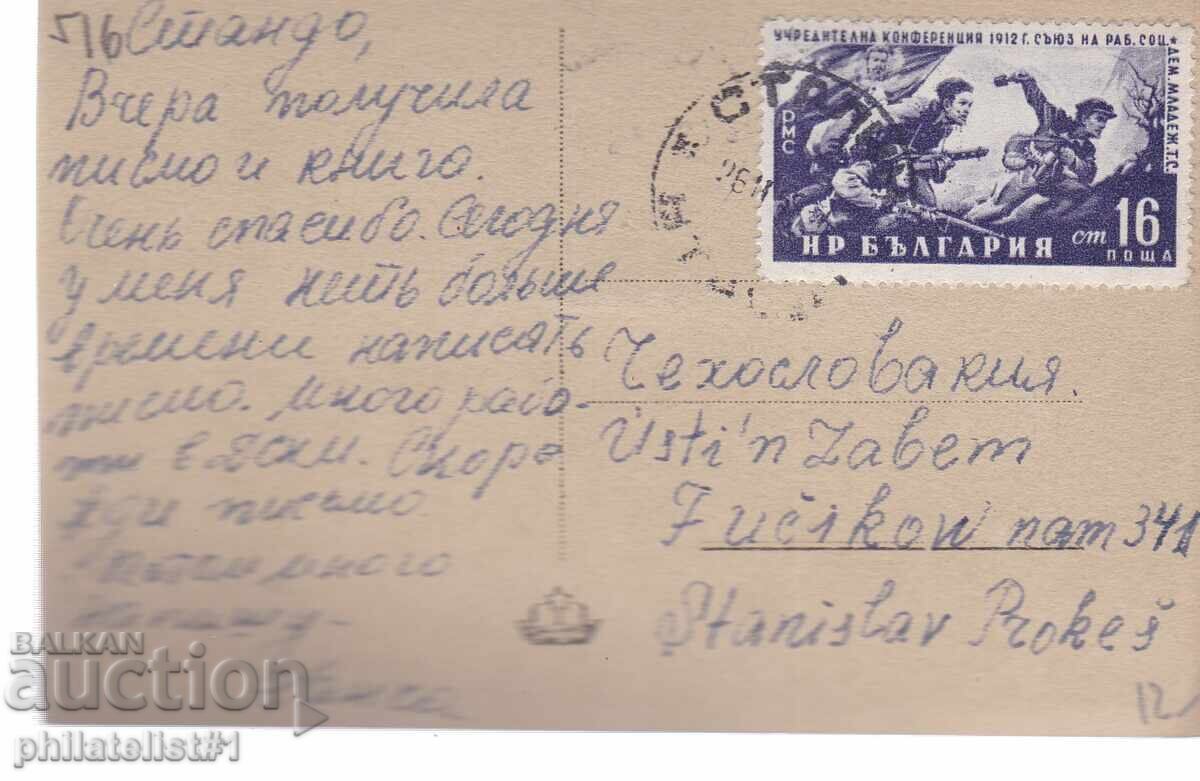 Стандо,
Вчера получила
писмо и книга.
Очень спасибо. Сегодня
у меня нетъ больше
времени написать
писмо. Много рабо-
ти
Скоро
жди письмо.
много
напишу.
УЧРЕДИТЕЛНА КОНФЕРЕНЦИЯ 1912 Г. СЪЮЗ НА РАБ. СОЦ.
ДЕМ. МЛАДЕЖ. Т.С.
РМС
НР БЪЛГАРИЯ ст 16
ПОЩА
Чехословакия.
Usti n Labem
Fučikow nam 341
Stanislav Prokeš
12
BALKAN
auction
philatelist#1